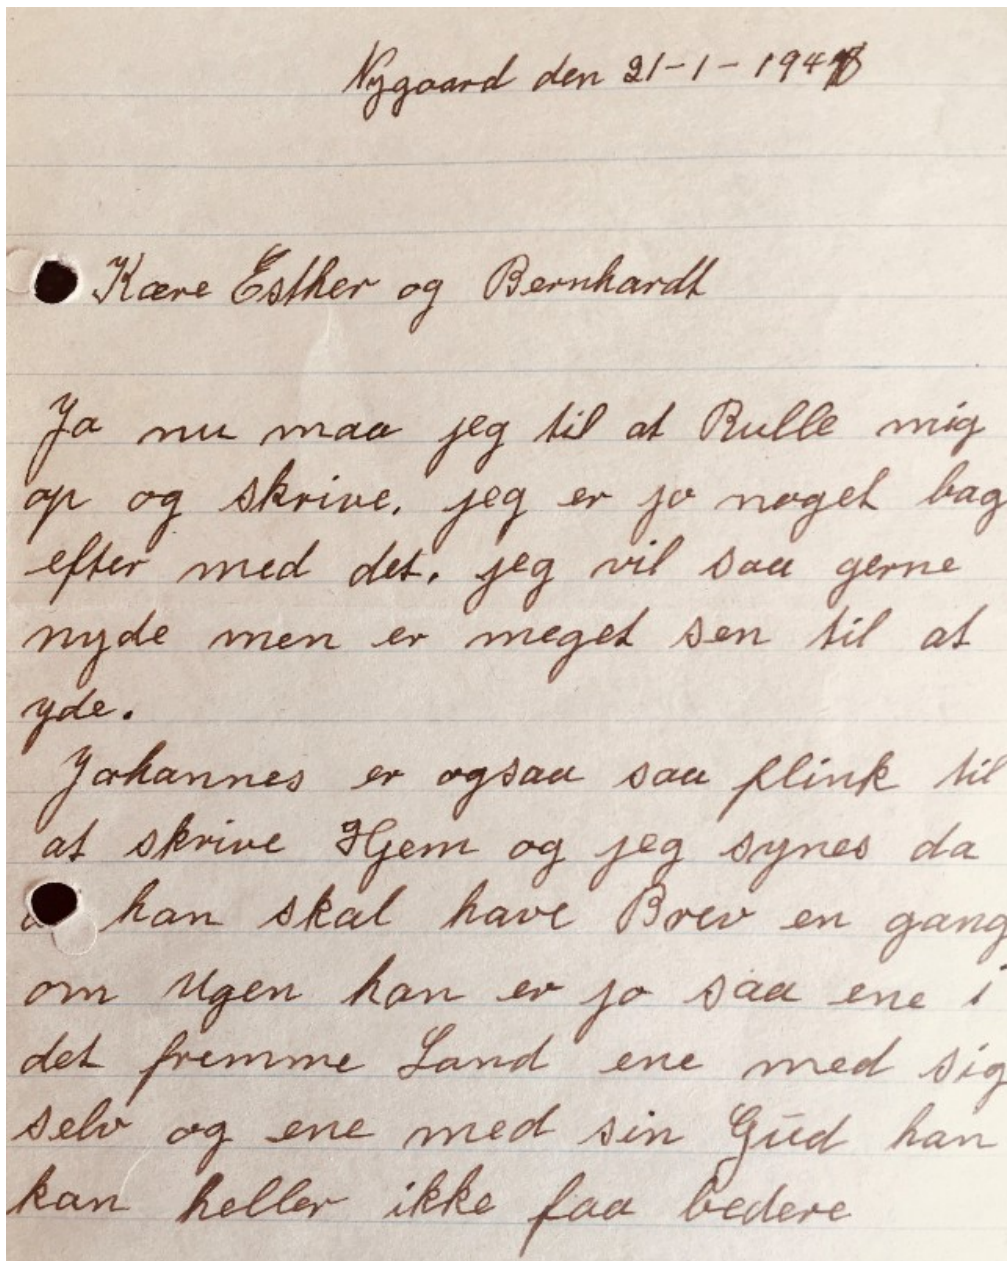 Nygaard den 21-1-1948
Kære Esther og Bernhardt
Ja nu maa jeg til at Rulle mig
op og skrive. jeg er jo noget bag
efter med det. jeg vil saa gerne
nyde men er meget sen til at
yde.
Johannes er ogsaa saa flink til
at skrive Hjem og jeg synes da
han skal have Brev en gang
om Ugen han er jo saa ene i
det fremme Land ene med sig
selv og ene med sin Gud han
kan heller ikke faa bedere